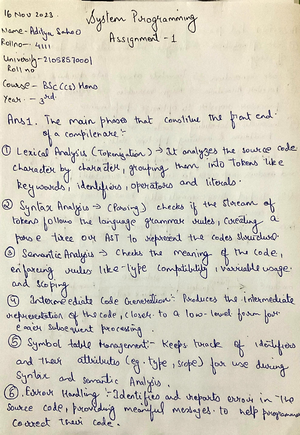 16 Nov 2023
System Programming
Assignment - 1
Name- Aditya Sahoo
Rollno- 4111
University- 21058570001
Roll no
Course - BSc(CS) Hons
Year - 3rd.
Ans1. The main phases that constitute the front end
of a compiler are:-
① Lexical Analysis (Tokenization) → It analyzes the source code
character by character, grouping them into tokens like
keywords, identifiers, operators and literals.
② Syntax Analysis → (Parsing) checks if the stream of
tokens follows the language grammar rules, creating a
parse tree or AST to represent the codes structure
③ Semantic Analysis → Checks the meaning of the code,
enforcing rules like type compatibility, variable usage
and scoping
④ Intermediate Code Generation:- Produces the intermediate
representation of the code, closer to a low-level form for
easier subsequent processing.
⑤ Symbol table Management- Keeps track of identifiers
and their attributes (eg. type, scope) for use during
Syntax and semantic Analysis.
⑥ Error Handling :- Identifies and reports errors in the
source code, providing meaningful messages to help programmers
correct their code.